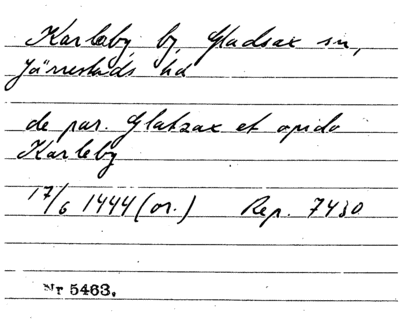 Karleby by, Gladsax sn,
Järrestads hd
de par. Glatzax et opido
Karleby
17/6 1444 (or.) Rep. 7430
Nr 5463.